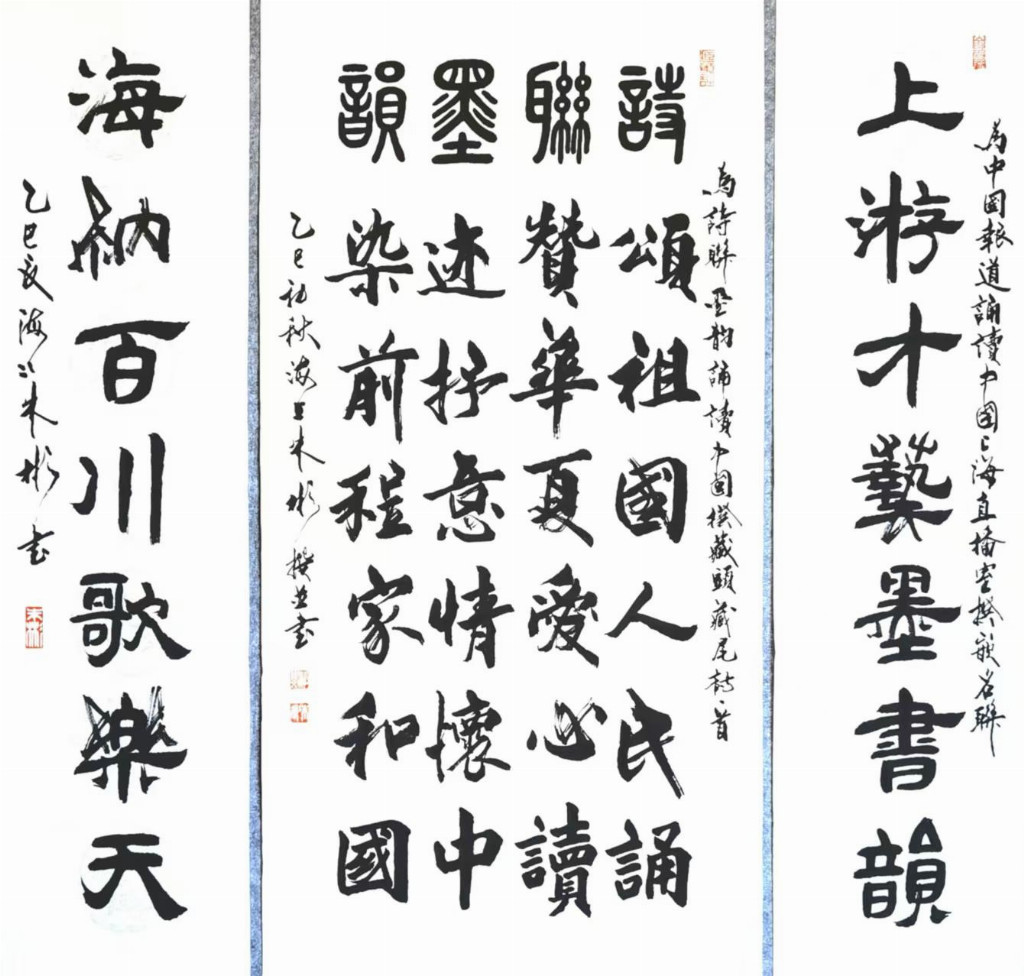 為中國報道誦讀中國上海直播室撰嵌名聯
上游才藝墨書韻
為詩聯墨韵誦讀中國撰藏頭藏尾詩一首
詩頌祖國人民誦
聯贊華夏愛心讀
墨迹抒意情懷中
韻染前程家和國
乙巳初秋海上朱彬撰並书
海納百川歌樂天
乙巳夏海上朱彬书